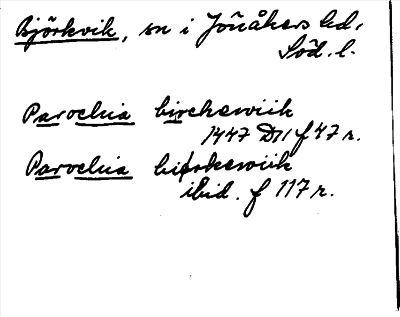 Björkvik, sn i Jönåkers hd.
Söd. l.
Parochia birchewiik
1447 D11 f 47 r.
Parochia birkewiik
ibid. f 117 r.